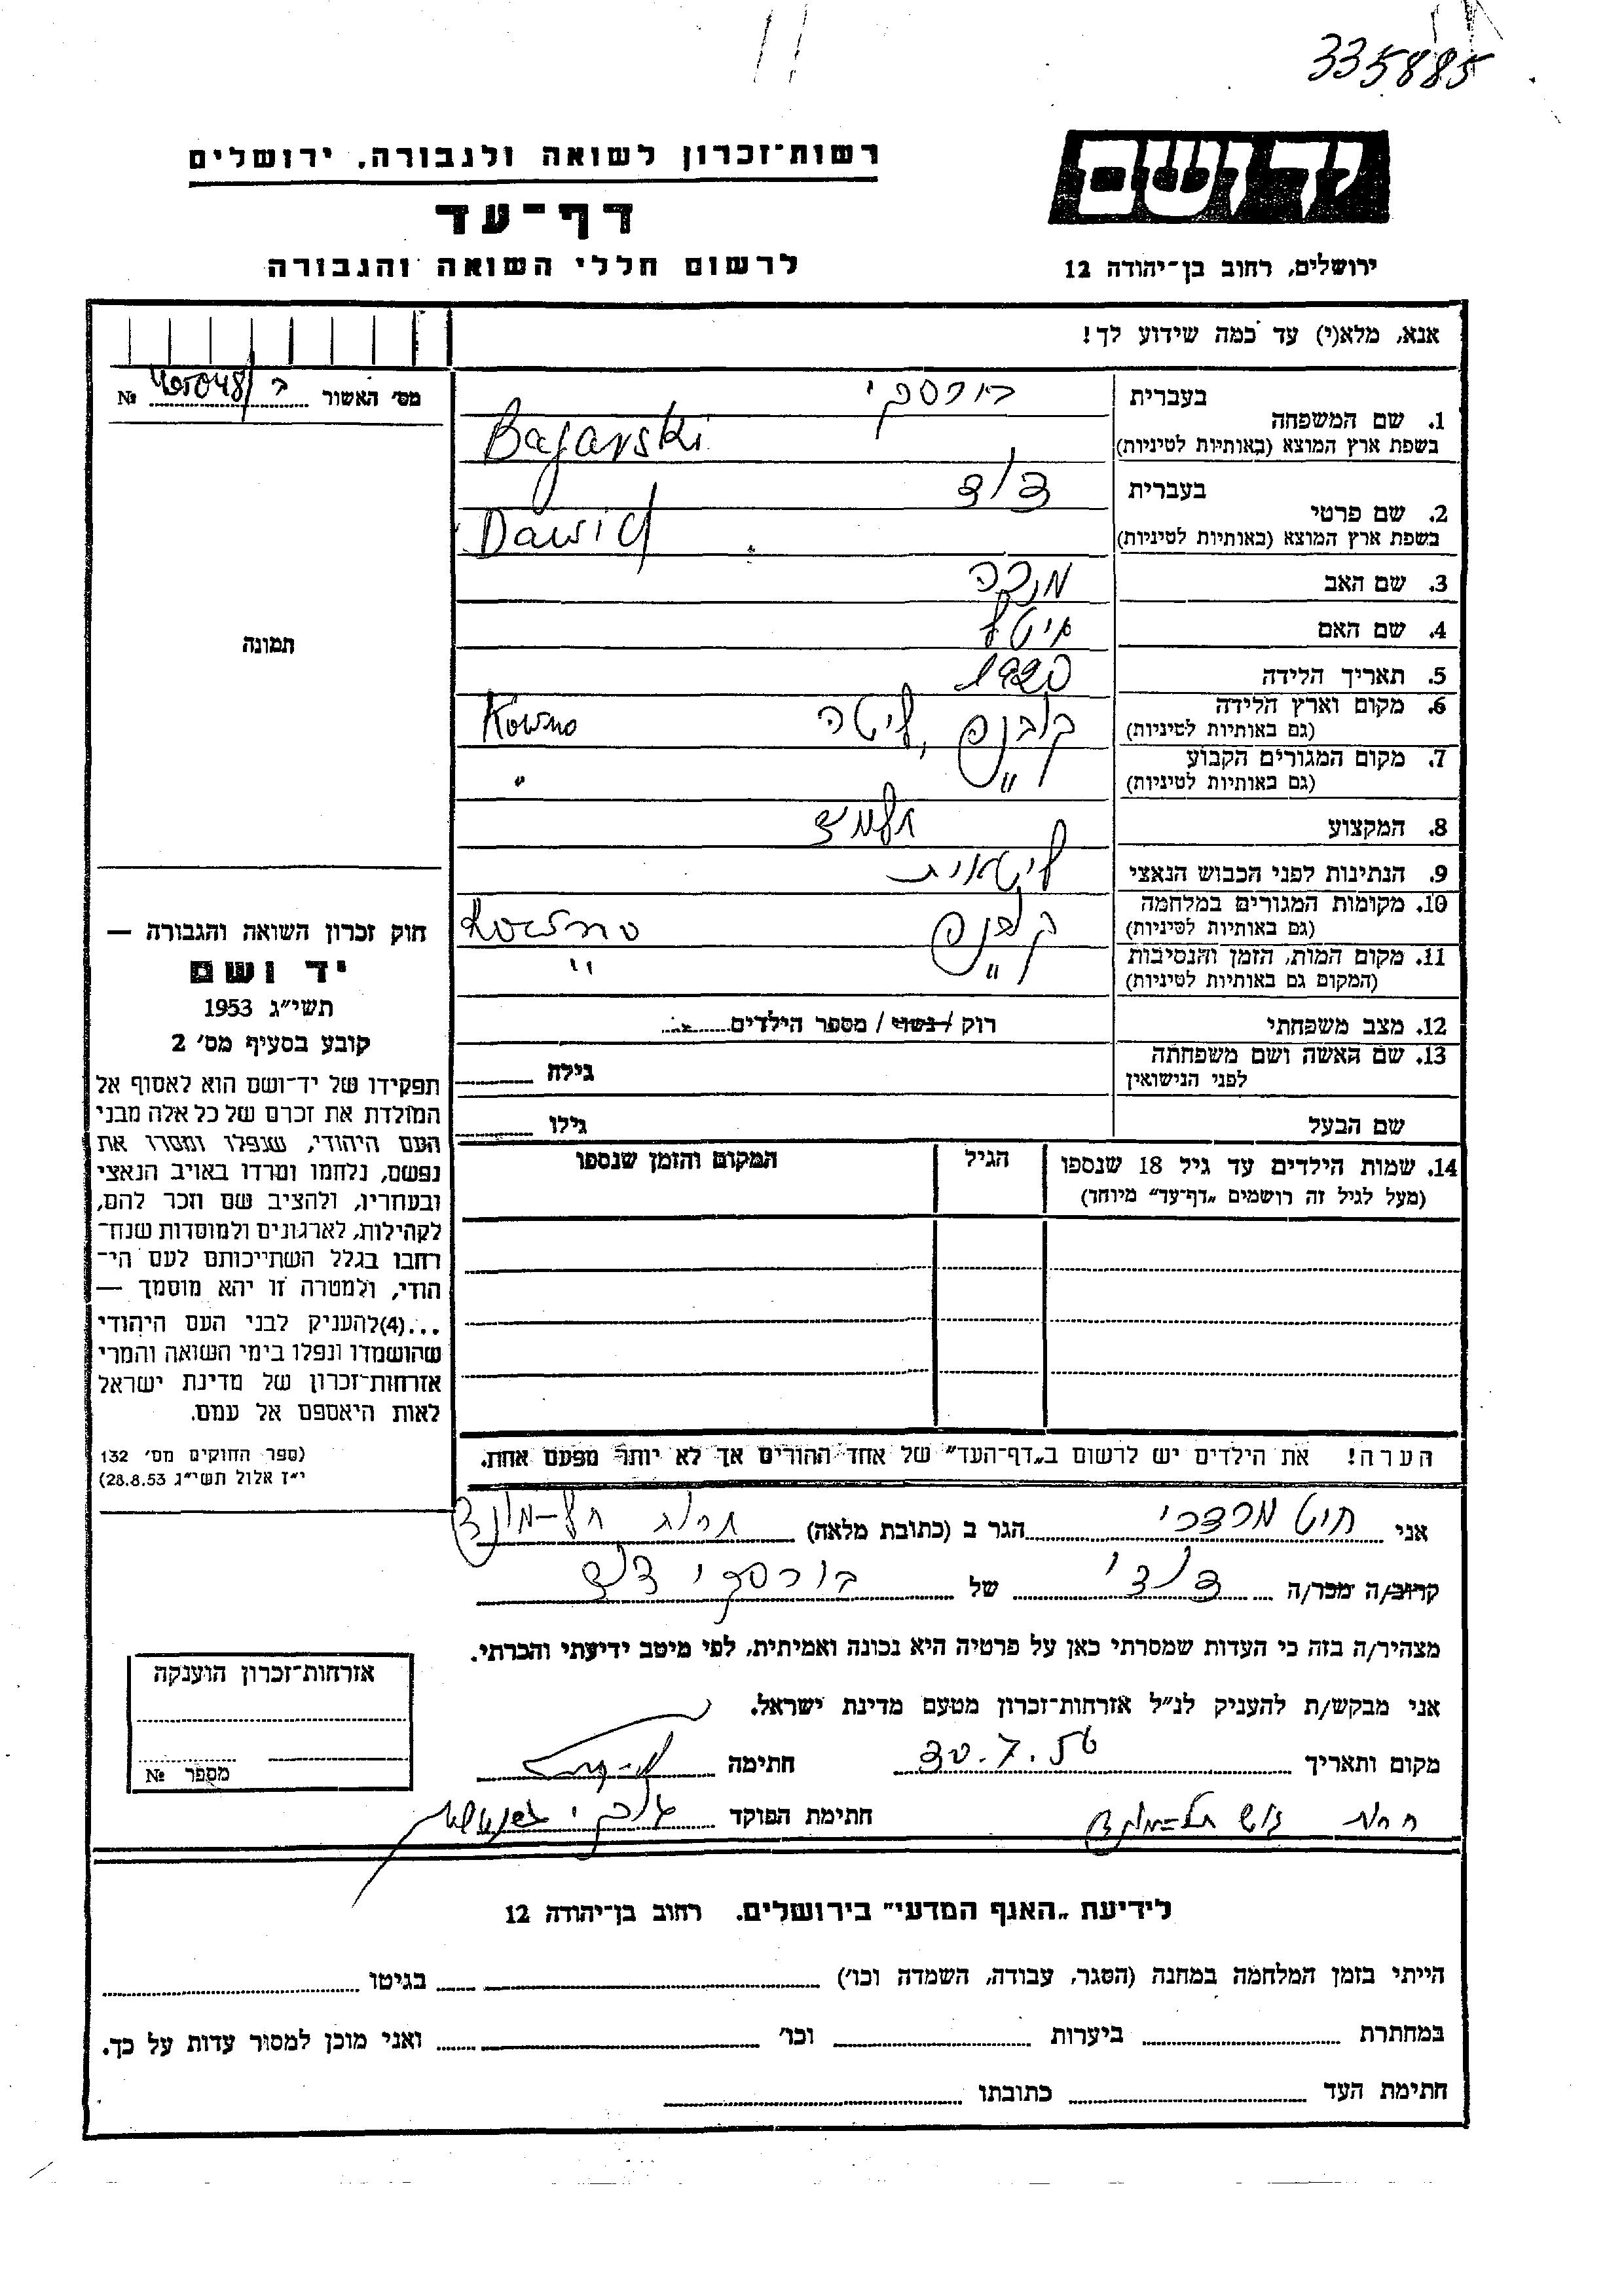 335885
יד ושם
רשות־זכרון לשואה ולגבורה, ירושלים
דף־עד
לרשום חללי השואה והגבורה
ירושלים, רחוב בן־יהודה 12
אנא, מלא(י) עד כמה שידוע לך!
מס׳ האשור № 405048/ב
1. שם המשפחה
בעברית בורסקי
בשפת ארץ המוצא (באותיות לטיניות) Bajarski
2. שם פרטי
בעברית דוד
בשפת ארץ המוצא (באותיות לטיניות) Dawid
3. שם האב
4. שם האם
5. תאריך הלידה 1920
6. מקום וארץ הלידה קובנה, ליטה Kowno
(גם באותיות לטיניות)
7. מקום המגורים הקבוע " "
(גם באותיות לטיניות)
8. המקצוע תלמיד
9. הנתינות לפני הכבוש הנאצי ליטאית
10. מקומות המגורים במלחמה קובנה Kowno
(גם באותיות לטיניות)
11. מקום המות, הזמן והנסיבות " "
(המקום גם באותיות לטיניות)
12. מצב משפחתי רוק / נשוי / מספר הילדים
13. שם האשה ושם משפחתה
לפני הנישואין גילה
שם הבעל גילו
14. שמות הילדים עד גיל 18 שנספו הגיל המקום והזמן שנספו
(מעל לגיל זה רושמים „דף־עד״ מיוחד)
הערה! את הילדים יש לרשום ב„דף־העד״ של אחד ההורים אך לא יותר מפעם אחת.
תמונה
חוק זכרון השואה והגבורה —
יד ושם
תשי״ג 1953
קובע בסעיף מס׳ 2
תפקידו של יד־ושם הוא לאסוף אל
המולדת את זכרם של כל אלה מבני
העם היהודי, שנפלו ומסרו את
נפשם, נלחמו ומרדו באויב הנאצי
ובעוזריו, ולהציב שם וזכר להם,
לקהילות, לארגונים ולמוסדות שנח־
רבו בגלל השתייכותם לעם הי־
הודי, ולמטרה זו יהא מוסמך —
...(4) להעניק לבני העם היהודי
שהושמדו ונפלו בימי השואה והמרי
אזרחות־זכרון של מדינת ישראל
לאות היאספם אל עמם.
(ספר החוקים מס׳ 132
י״ז אלול תשי״ג 28.8.53)
אני חיט מרדכי הגר ב (כתובת מלאה)
קרוב/ה מכר/ה דודי של בורסקי דוד
מצהיר/ה בזה כי העדות שמסרתי כאן על פרטיה היא נכונה ואמיתית, לפי מיטב ידיעתי והכרתי.
אני מבקש/ת להעניק לנ״ל אזרחות־זכרון מטעם מדינת ישראל.
מקום ותאריך 30.7.56 חתימה
חתימת הפוקד
אזרחות־זכרון הוענקה
מספר №
לידיעת „האגף המדעי״ בירושלים. רחוב בן־יהודה 12
הייתי בזמן המלחמה במחנה (הסגר, עבודה, השמדה וכו׳) בגיטו
במחתרת ביערות וכו׳ ואני מוכן למסור עדות על כך.
חתימת העד כתובתו